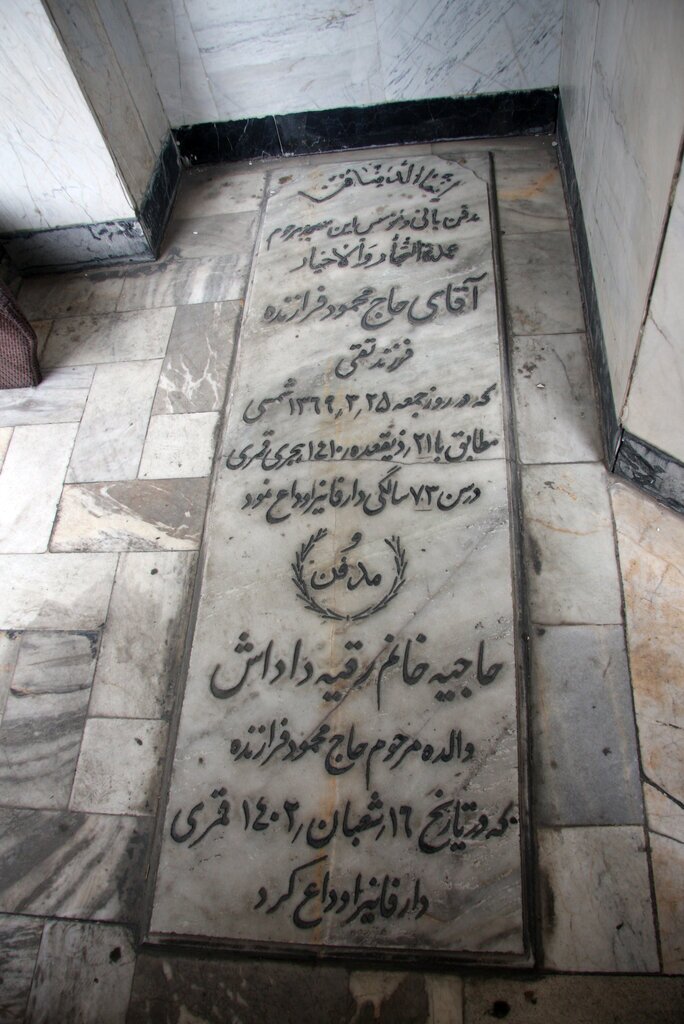 مدفن بانی و موسس این مسجد مرحوم
عمدة التجار والاخیار
آقای حاج محمود فرازنده
فرزند تقی
که در روز جمعه ۲۵ر۳ر۱۳۶۹ شمسی
مطابق با ۲۱ر ذیقعده ر۱۴۱۰ هجری قمری
در سن ۷۳ سالگی دار فانیرا وداع نمود
و
مدفن
حاجیه خانم رقیه داداش
والده مرحوم حاج محمود فرازنده
که در تاریخ ۱۶ر شعبان ر۱۴۰۲ قمری
دار فانیرا وداع کرد